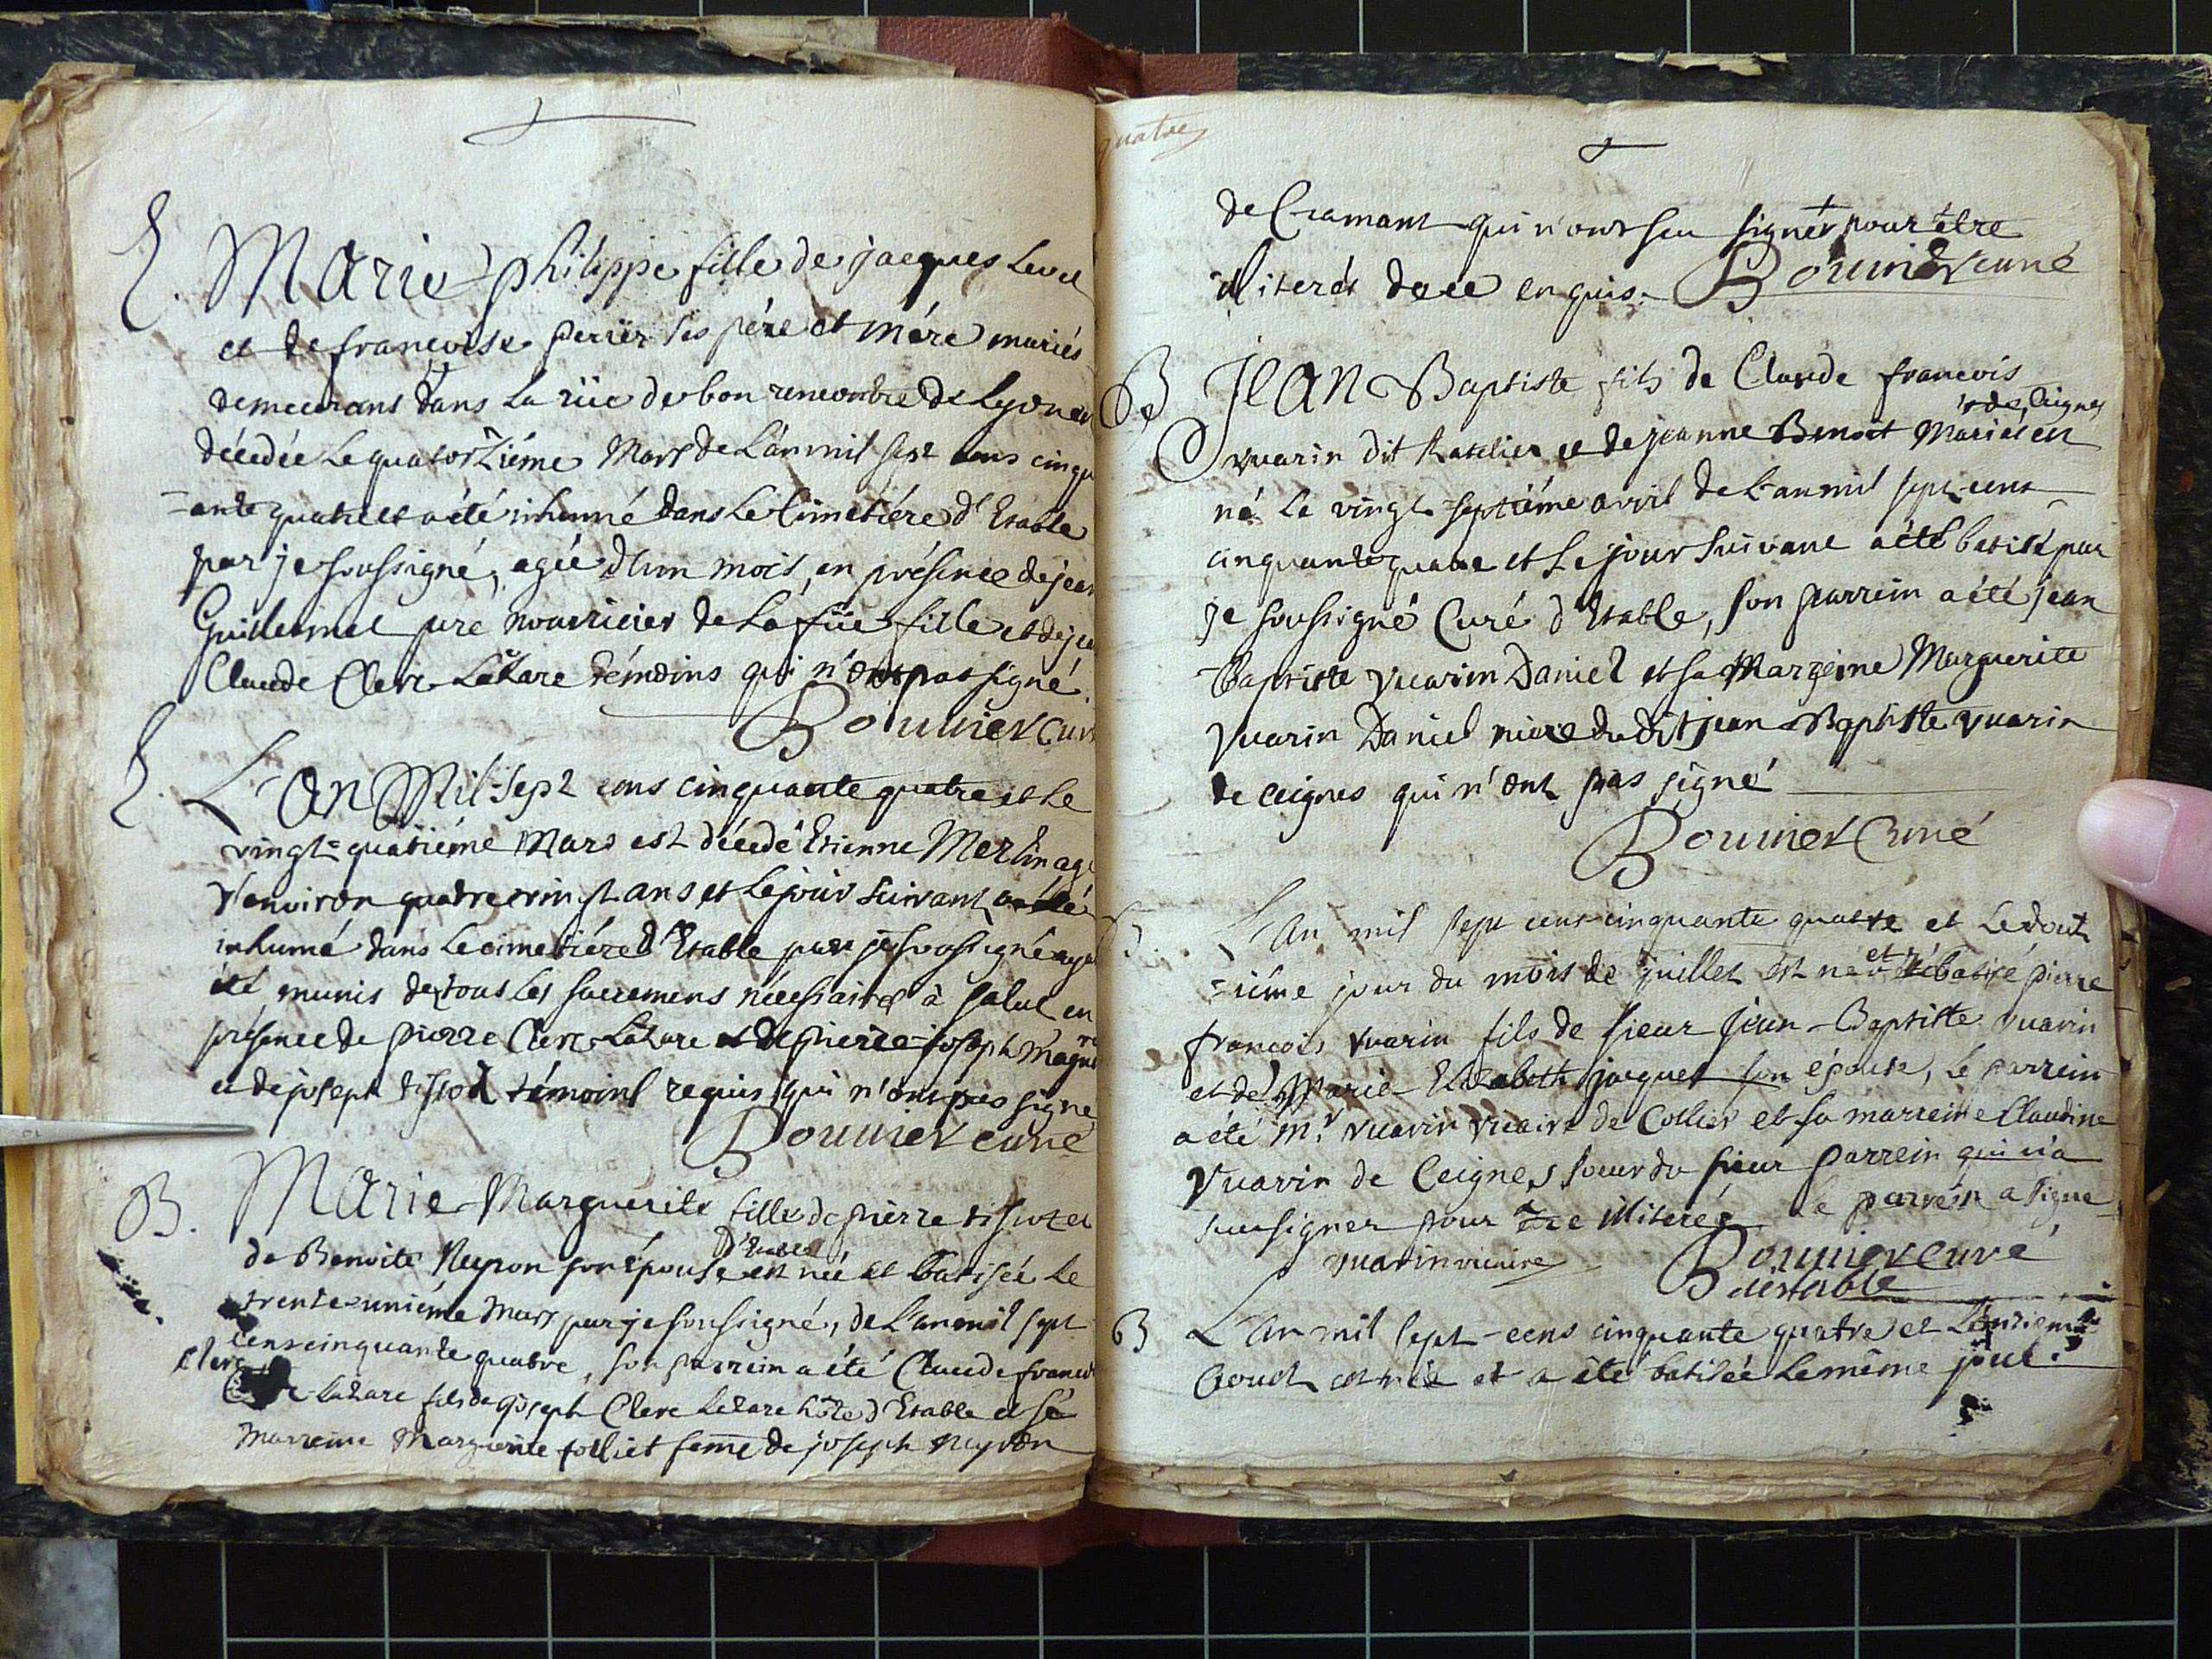 E. Marie philippe fille de jacques
et de francoise perier ses pére et mére mariés
demeurans dans la rüe de bon rencontre de Lyon
décédée le quatorziéme Mars de L'an mil sept cens cinqu
=ante quatre et a été inhumé dans le Cimetiére d'Etable
par je soussigné, agée d'un mois, en présence de jean
Guillermet pere nourricier de La fille et de
Claude Clerc Lazare témoins qui n'ont pas signé.
Bouvier Curé
E. L'an Mil-sept cens cinquante quatre et le
vingt=quatriéme Mars est décédé Etienne Merlin agé
d'environ quatre vingt ans et le jour suivant a été
inhumé dans le cimetiére d'Etable par je soussigné ayant
été munis de tous les sacremens nécessaires à salut en
présence de pierre Clerc-Lazare et de pierre-joseph
et de joseph tissot témoins requis qui n'ont pas signé
Bouvier curé
B. Marie-Marguerite fille de pierre tissot et
de Benoite Neyron son épouse d'Etable est née et batisée le
trente-uniéme Mars par je soussigné, de L'an mil sept
cens cinquante quatre, son parrein a été Claude francois
Clerc Lazare fils de joseph Clerc Lazare hôte d'Etable et sa
marreine Marguerite folliet feme de joseph neyron
quatre
de Cramant qui n'ont seu signer pour être
illiterés de ce enquis. Bouvier curé
B Jean Baptiste fils de Claude francois
vuarin dit Ratelier et de jeanne Benoit Mariés et de Ceignes
né le vingt-septiéme avril de L'an mil sept-cens
cinquante quatre et le jour suivant a été batisé par
je soussigné Curé d'Etable, son parrein a été jean
Baptiste vuarin Daniel et sa Marreine Marguerite
vuarin Daniel niéce du dit jean Baptiste vuarin
de ceignes qui n'ont pas signé
Bouvier Curé
B. L'an mil sept cens cinquante quatre et le
=ziéme jour du mois de juillet est né et été batisé pierre
francois vuarin fils de sieur jean-Baptiste vuarin
et de Marie-Elizabeth jacquet son épouse, le parrein
a été mr. vuarin vicaire de Collier et sa marreine Claudine
vuarin de Ceignes soeur du sieur parrein qui n'a
seu signer pour être illiterée le parrein a signé
vuarin vicaire Bouvier curé
d'estable
B L'an mil sept-cens cinquante quatre et
aout est née et a été batisée le même jour.